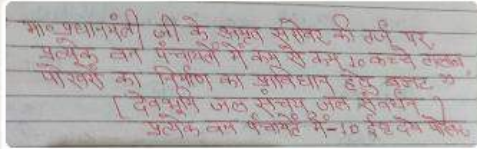 मा० प्रधानमंत्री जी के अमृत सरोवर की तर्ज पर
प्रत्येक वन पंचायतों में कम से कम 10 कच्चे तालाब
पोखरों का निर्माण का प्राविधान हेतु बजट
(देवभूमि जल संचय जल संवर्धन)
प्रत्येक वन पंचायत में-10